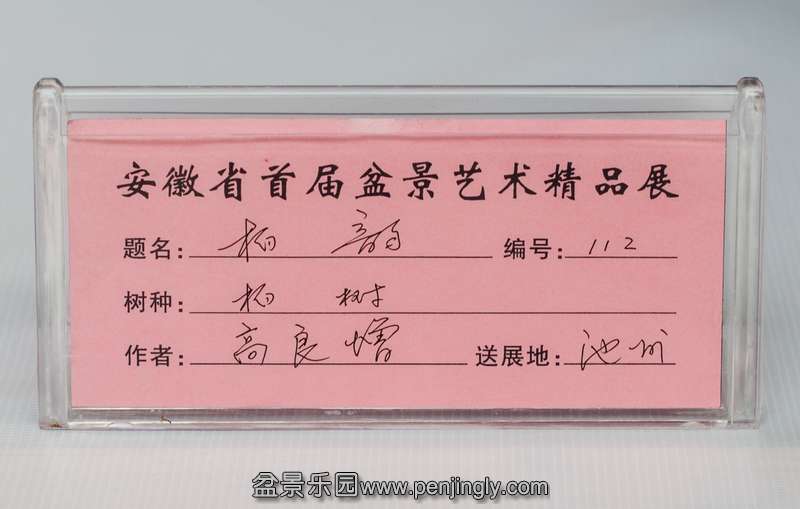 安徽省首届盆景艺术精品展
题名：柏 韵 编号：112
树种：柏 树
作者：高良 送展地：池州
盆景乐园www.penjingly.com